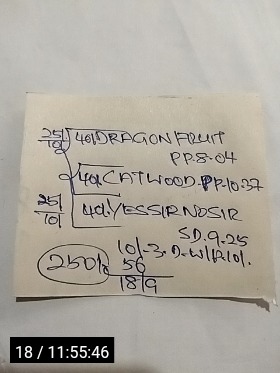 25/ 40/.DRAGONFRUIT
10/
PP.8.04
40/.CATWOOD.PP.10.37
25/ 40/.YESSIRNOSIR
10/
SD.9.25
10/-3.D.W/R10/.
250/
56
18/9
18 / 11:55:46